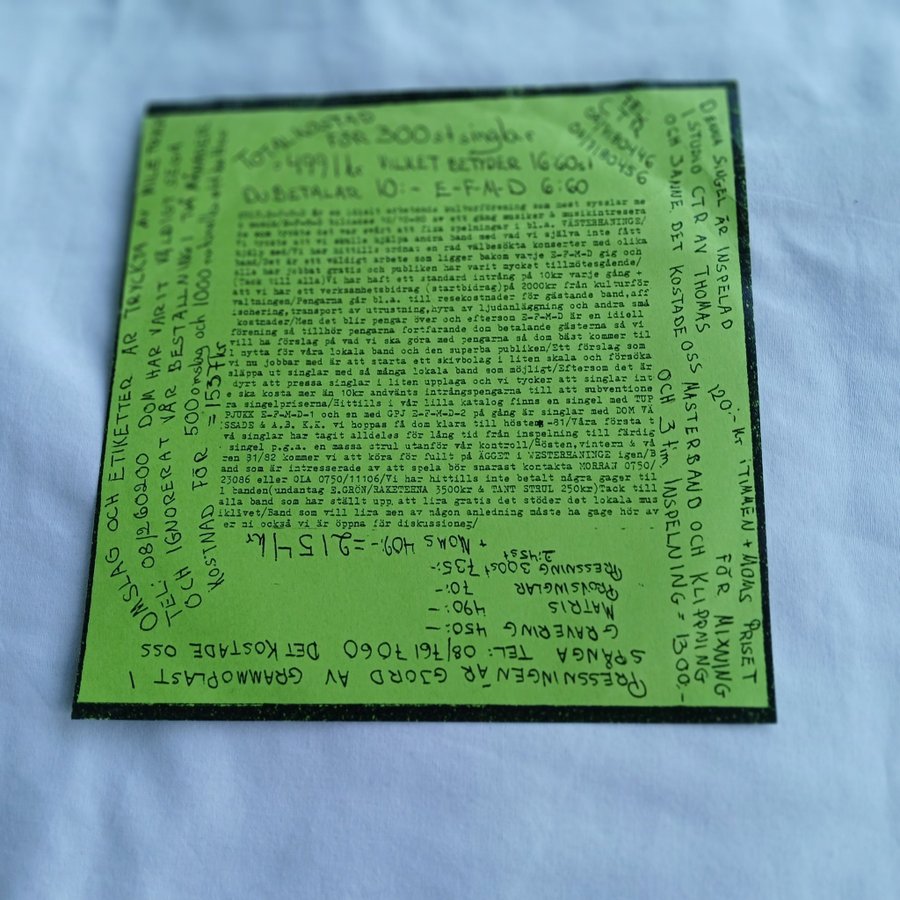 TOTALKOSTNAD
FÖR 300 st singlar
: 4991 kr VILKET BETYDER 16:60 st
DU BETALAR 10:- E-F-M-D 6:60
är en ideell arbetande kulturförening som mest sysslar me
av ett gäng musiker & musikintresera
svårt att fixa spelningar i bl.a. VÄSTERHANINGE/
hjälpa andra band med vad vi själva inte fått
hjälp med/Vi har hittills ordnat en rad välbesökta konserter med olika
band/Det är ett väldigt arbete som ligger bakom varje E-F-M-D gig och
alla har jobbat gratis och publiken har varit mycket tillmötesgående/
(Tack till alla)Vi har haft ett standard inträng på 10kr varje gång +
att vi har ett verksamhetsbidrag (startbidrag)på 2000kr från kulturför
valtningen/Pengarna går bl.a. till resekostnader för gästande band,aff
ischering,transport av utrustning,hyra av ljudanläggning och andra små
kostnader/Men det blir pengar över och eftersom E-F-M-D är en ideell
förening så tillhör pengarna fortfarande dom betalande gästerna så vi
vill ha förslag på vad vi ska göra med pengarna så dom bäst kommer til
l nytta för våra lokala band och den superba publiken/Ett förslag som
vi nu jobbar med är att starta ett skivbolag i liten skala och försöka
släppa ut singlar med så många lokala band som möjligt/Eftersom det är
dyrt att pressa singlar i liten upplaga och vi tycker att singlar int
e ska kosta mer än 10kr använts inträngspengarna till att subventione
ra singelpriserna/Hittills i vår lilla katalog finns en singel med TUP
PJUKK E-F-M-D-1 och en med GPJ E-F-M-D-2 på gång är singlar med DOM VÄ
SSADE & A.B. K.K. vi hoppas få dom klara till hösten -81/Våra första t
vå singlar har tagit alldeles för lång tid från inspelning till färdig
singel p.g.a. en massa strul utanför vår kontroll/Hösten,vintern & vå
ren 81/82 kommer vi att köra för fullt på ÄGGET i WESTERHANINGE igen/B
and som är intresserade av att spela bör snarast kontakta MORRAN 0750/
23086 eller OLA 0750/11106/Vi har hittills inte betalt några gager til
l banden(undantag E.GRÖN/RAKETERNA 3500kr & TANT STRUL 250kr)Tack till
alla band som har ställt upp att lira gratis det stöder det lokala mus
iklivet/Band som vill lira men av någon anledning måste ha gage hör av
er ni också vi är öppna för diskussioner/
DENNA SINGEL ÄR INSPELAD
I STUDIO CTR AV THOMAS
OCH JANNE. DET KOSTADE OSS
120:- kr /TIMMEN + MOMS PRISET
MASTERBAND OCH KLIPPNING FÖR MIXNING
OCH 3 tim INSPELNING = 1300:-
PRESSNINGEN ÄR GJORD AV GRAMMOPLAST I
SPÅNGA TEL: 08/7617060 DET KOSTADE OSS
GRAVERING 450:-
MATRIS 490:-
PROVSINGLAR 70:-
PRESSNING 300st 735:-
2:45st
+ MOMS 409:- = 2154 kr
OMSLAG OCH ETIKETTER ÄR TRYCKTA AV
TEL: 08/260200 DOM HAR VARIT VÄLDIGT SEGA
OCH IGNORERAT VÅR BESTÄLLNING I TVÅ MÅNADER
KOSTNAD FÖR 500 omslag och 1000
= 1537 kr